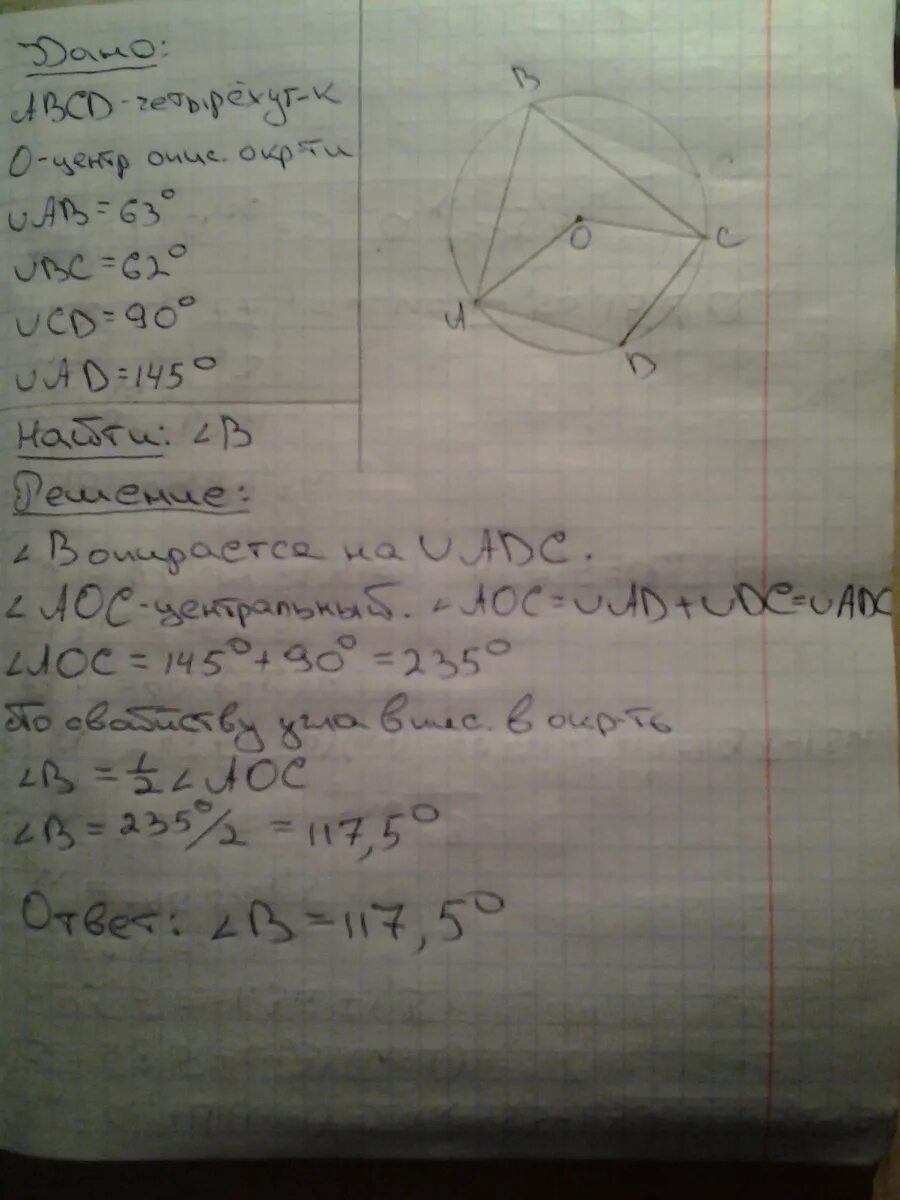 Дано:
ABCD-четырёхуг-к
О-центр опис. окр-ти
∪AB=63°
∪BC=62°
∪CD=90°
∪AD=145°
Найти: ∠B
Решение:
∠B опирается на ∪ADC.
∠AOC-центральный. ∠AOC=∪AD+∪DC=∪ADC
∠AOC=145°+90°=235°
По свойству угла впис. в окр-ть
∠B=1/2∠AOC
∠B=235°/2=117,5°
Ответ: ∠B=117,5°
B
O
C
A
D